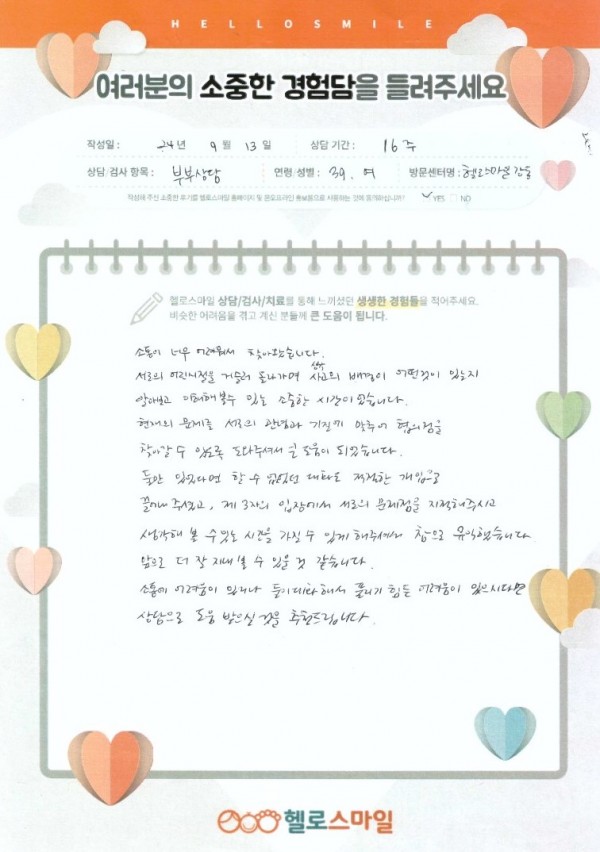 HELLOSMILE
여러분의 소중한 경험담을 들려주세요
작성일 : 24년 9월 13일 상담 기간 : 16주
상담/검사 항목 : 부부상담 연령/성별 : 39. 여 방문센터명 : 헬로스마일 강동
작성해 주신 소중한 후기를 헬로스마일 홈페이지 및 온오프라인 홍보용으로 사용하는 것에 동의하십니까? ✓YES NO
헬로스마일 상담/검사/치료를 통해 느끼셨던 생생한 경험들을 적어주세요.
비슷한 어려움을 겪고 계신 분들께 큰 도움이 됩니다.
소통이 너무 어려워서 찾아왔습니다.
서로의 어린시절을 거슬러 올라가면 사고의 배경이 어떤것이 있는지
알아보고 이해해볼수 있는 소중한 시간이었습니다.
현재의 문제를 서로의 환경과 기질에 맞추어 협의점을
찾아갈 수 있도록 도와주셔서 큰 도움이 되었습니다.
둘만 있었다면 할 수 없었던 대화도 적절한 개입으로
끌어내 주셨고, 제 3자의 입장에서 서로의 문제점을 지적해주시고
생각해 볼 수 있는 시간을 가질 수 있게 해주셔서 참으로 유익했습니다
앞으로 더 잘 지내볼 수 있을 것 같습니다.
소통에 어려움이 있거나 둘이 대화해서 풀리기 힘든 어려움이 있으시다면
상담으로 도움 받으실 것을 추천드립니다.
헬로스마일